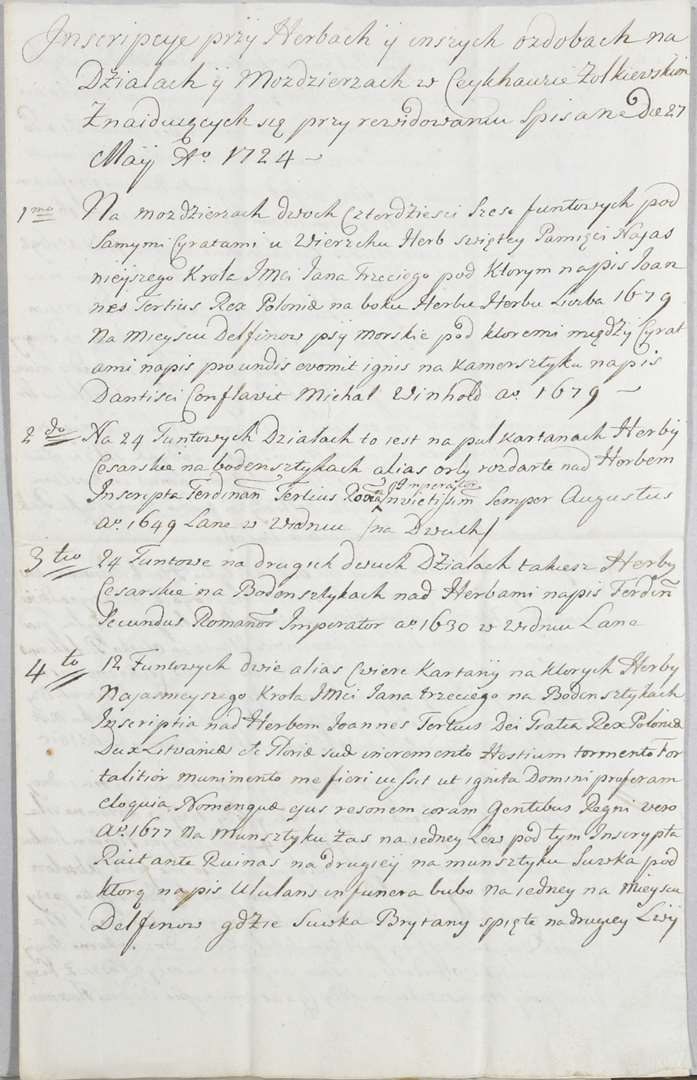 Inscripcye przy Herbach ÿ inszych ozdobach na
Działach ÿ Mozdzierzach w Ceykhauzie Zołkiewskim
Znaiduiących się przy rewidowaniu Spisane Die 27
Maÿ Aº 1724 —
1mo Na mozdzierzach dwoch Czterdziesci szesc funtowych pod
samymi Cyratami u Wierzchu Herb swiętey Pamięci Najas
nieyszego Krola JMci Jana Trzeciego pod Ktorym napis Joan-
nes Tertius Rex Poloniæ na boku Herbu Herbu Liczba 1679
Na mieyscu Delfinow psÿ morskie pod ktoremi między Cyrat
ami napis pro undis evomit ignis na kamersztyku napis
Dantisci Conflavit Michal Winhold aº 1679 —
2do Na 24 Funtowych Działach to iest na puł kartanach Herbÿ
Cesarskie na bodensztykach alias orły rozdarte nad Herbem
Inscripta Ferdinan Tertius Roma Imperator Invictissim Semper Augustus
aº 1649 Lane w Wiedniu /na Dwuch/
3tio 24 Funtowe na drugich dwuch Działach takiesz Herby
Cesarskie na Bodensztykach nad Herbami napis Ferdin
Secundus Romanor Imperator aº 1630 w Wiedniu Lane
4to 12 Funtowych dwie alias cwierc Kartanÿ na ktorych Herby
Najasnieyszego Krola JMci Jana trzeciego na Bodensztykach
Inscriptia nad Herbem Joannes Tertius Dei Gratia Rex Poloniæ
Dux Litvaniæ &c Gloriæ suæ incremento Hostium tormento For
talitior munimento me fieri iussit ut ignita Domini proferam
eloquia Nomenquæ ejus resonem coram Gentibus Regni vero
Aº 1677 Na munsztyku zas na iedney Lew pod tym Inscrypta
Rictante Ruinas na drugieÿ na munsztyku Suwka pod
ktorą napis Ululans in funera bubo Na iedney na mieyscu
Delfinow gdzie Suwka Brytany spięte na drugiey Lwÿ